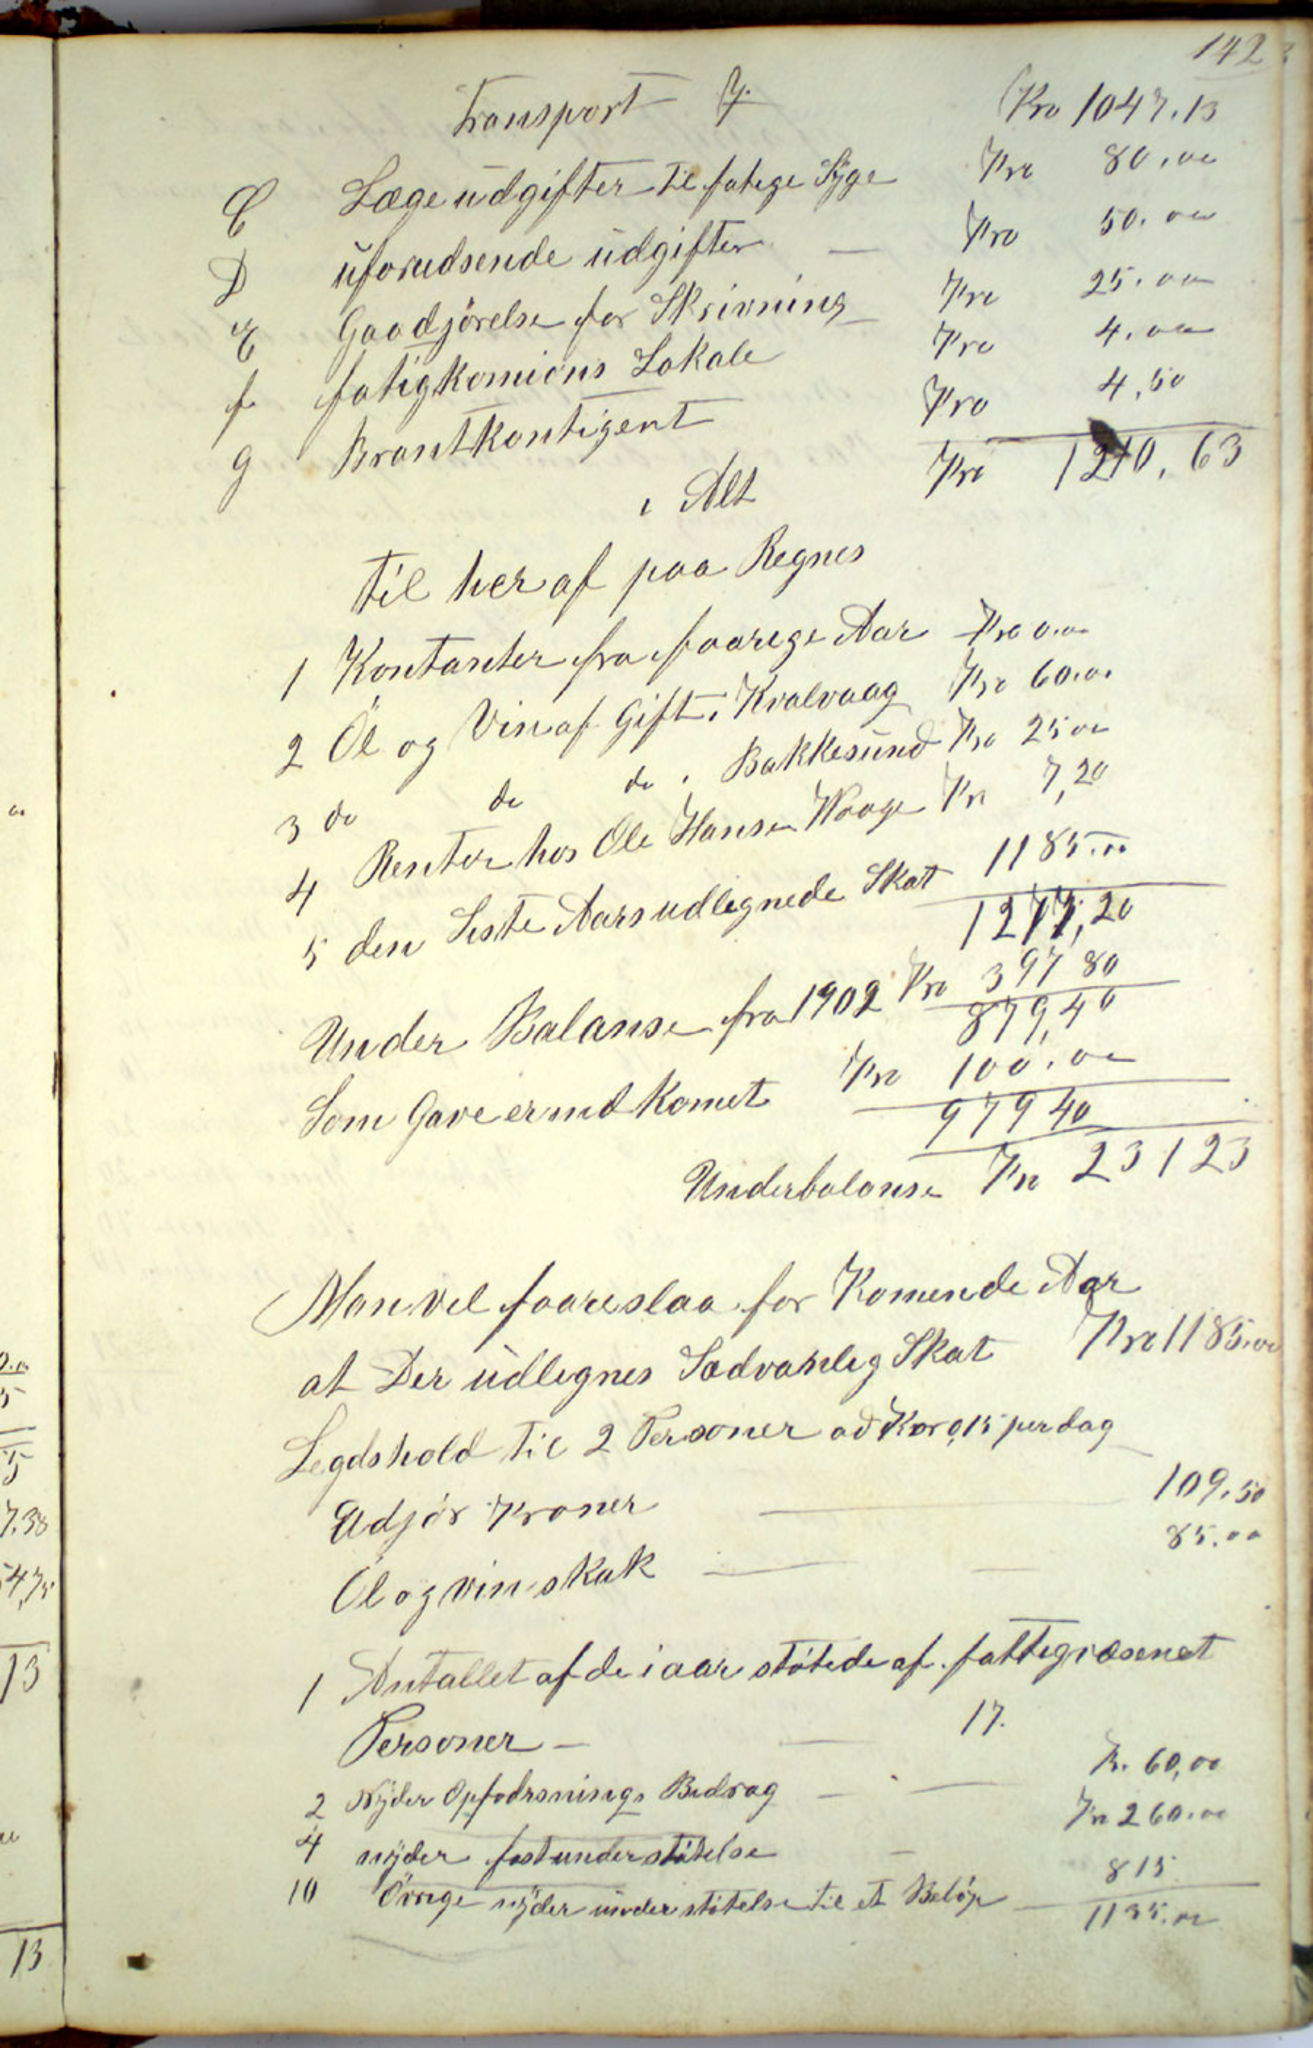 142
Transport Kro 1047.13
C Lægeudgifter til fatige Syge Kro 80.00
D uforudsende udgifter — Kro 50.00
E Gaadjörelse for Skrivning Kro 25.00
f. fatigkomions Lokale Kro 4.00
g Brantkontigent Kro 4,50
i Alt Kro 1210,63
til her af paa Regnes
1 Kontanter fra faarige Aar Kro 0.00
2 Öl og Vin af Gift i Kvalvaag Kro 60.00
3 do do do i Bakkesund Kro 25 00
4 Renter hos Ole Hansen Waage Kr 7,20
5 den Siste Aars udlignede Skat 1185.00
1277,20
Under Balanse fra 1902 Kro 397 80
879,40
Som Gave er ind komet Kro 100.00
979 40
Underbalanse Kr 231 23
Man vil faareslaa for Komende Aar
at Der udlignes Sædvanlig Skat Kro 1185.00
Legdshold til 2 Personer ad Kro 0,15 per dag
Udjör Kroner — 109.50
Öl og vin skak — 85.00
1 Antallet af de i aar stötede af fattigvæsenet
Personer — 17.
2 Nyder Opfodrsnings Bedrag — Kr. 60,00
4 nyder fast understötelse Kr 260.00
10 Övrige nyder understötelse til et Belöp 815
1135.00